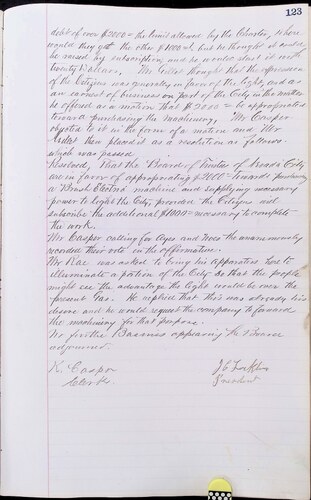 123
debt of over $2000= the limit allowed by the Charter, where
would they get the other $1100=, but he thought it could
be raised by subscription, and he would start it with
twenty Dollars, Mr Gillet thought that the expression
of the Citizens was generally in favor of the light, and as
an earnest of business on part of the City in the matter
he offered as a motion that $2000= be appropriated
toward purchasing the Machinery, Mr Casper
objected to it in the form of a motion and Mr
then placed it as a resolution as follows
which was passed.
Resolved, That the Board of Trustees of City
are in favor of appropriating $2000= towards purchasing
a Brush Electric machine and supplying necessary
power to light the City, provided the Citizens will
subscribe the additional $1100= necessary to complete
the work.
Mr Casper calling for Ayes and Noes the unanimously
recorded their vote in the affirmative.
Mr Rae was asked to bring his apparatus here to
illuminate a portion of the City so that the people
might see the advantage the light would be over the
present Gas. He replied that this was already his
desire and he would request the company to forward
the machinery for that purpose.
No further Business appearing the Board
adjourned.
K. Casper
Clerk
President